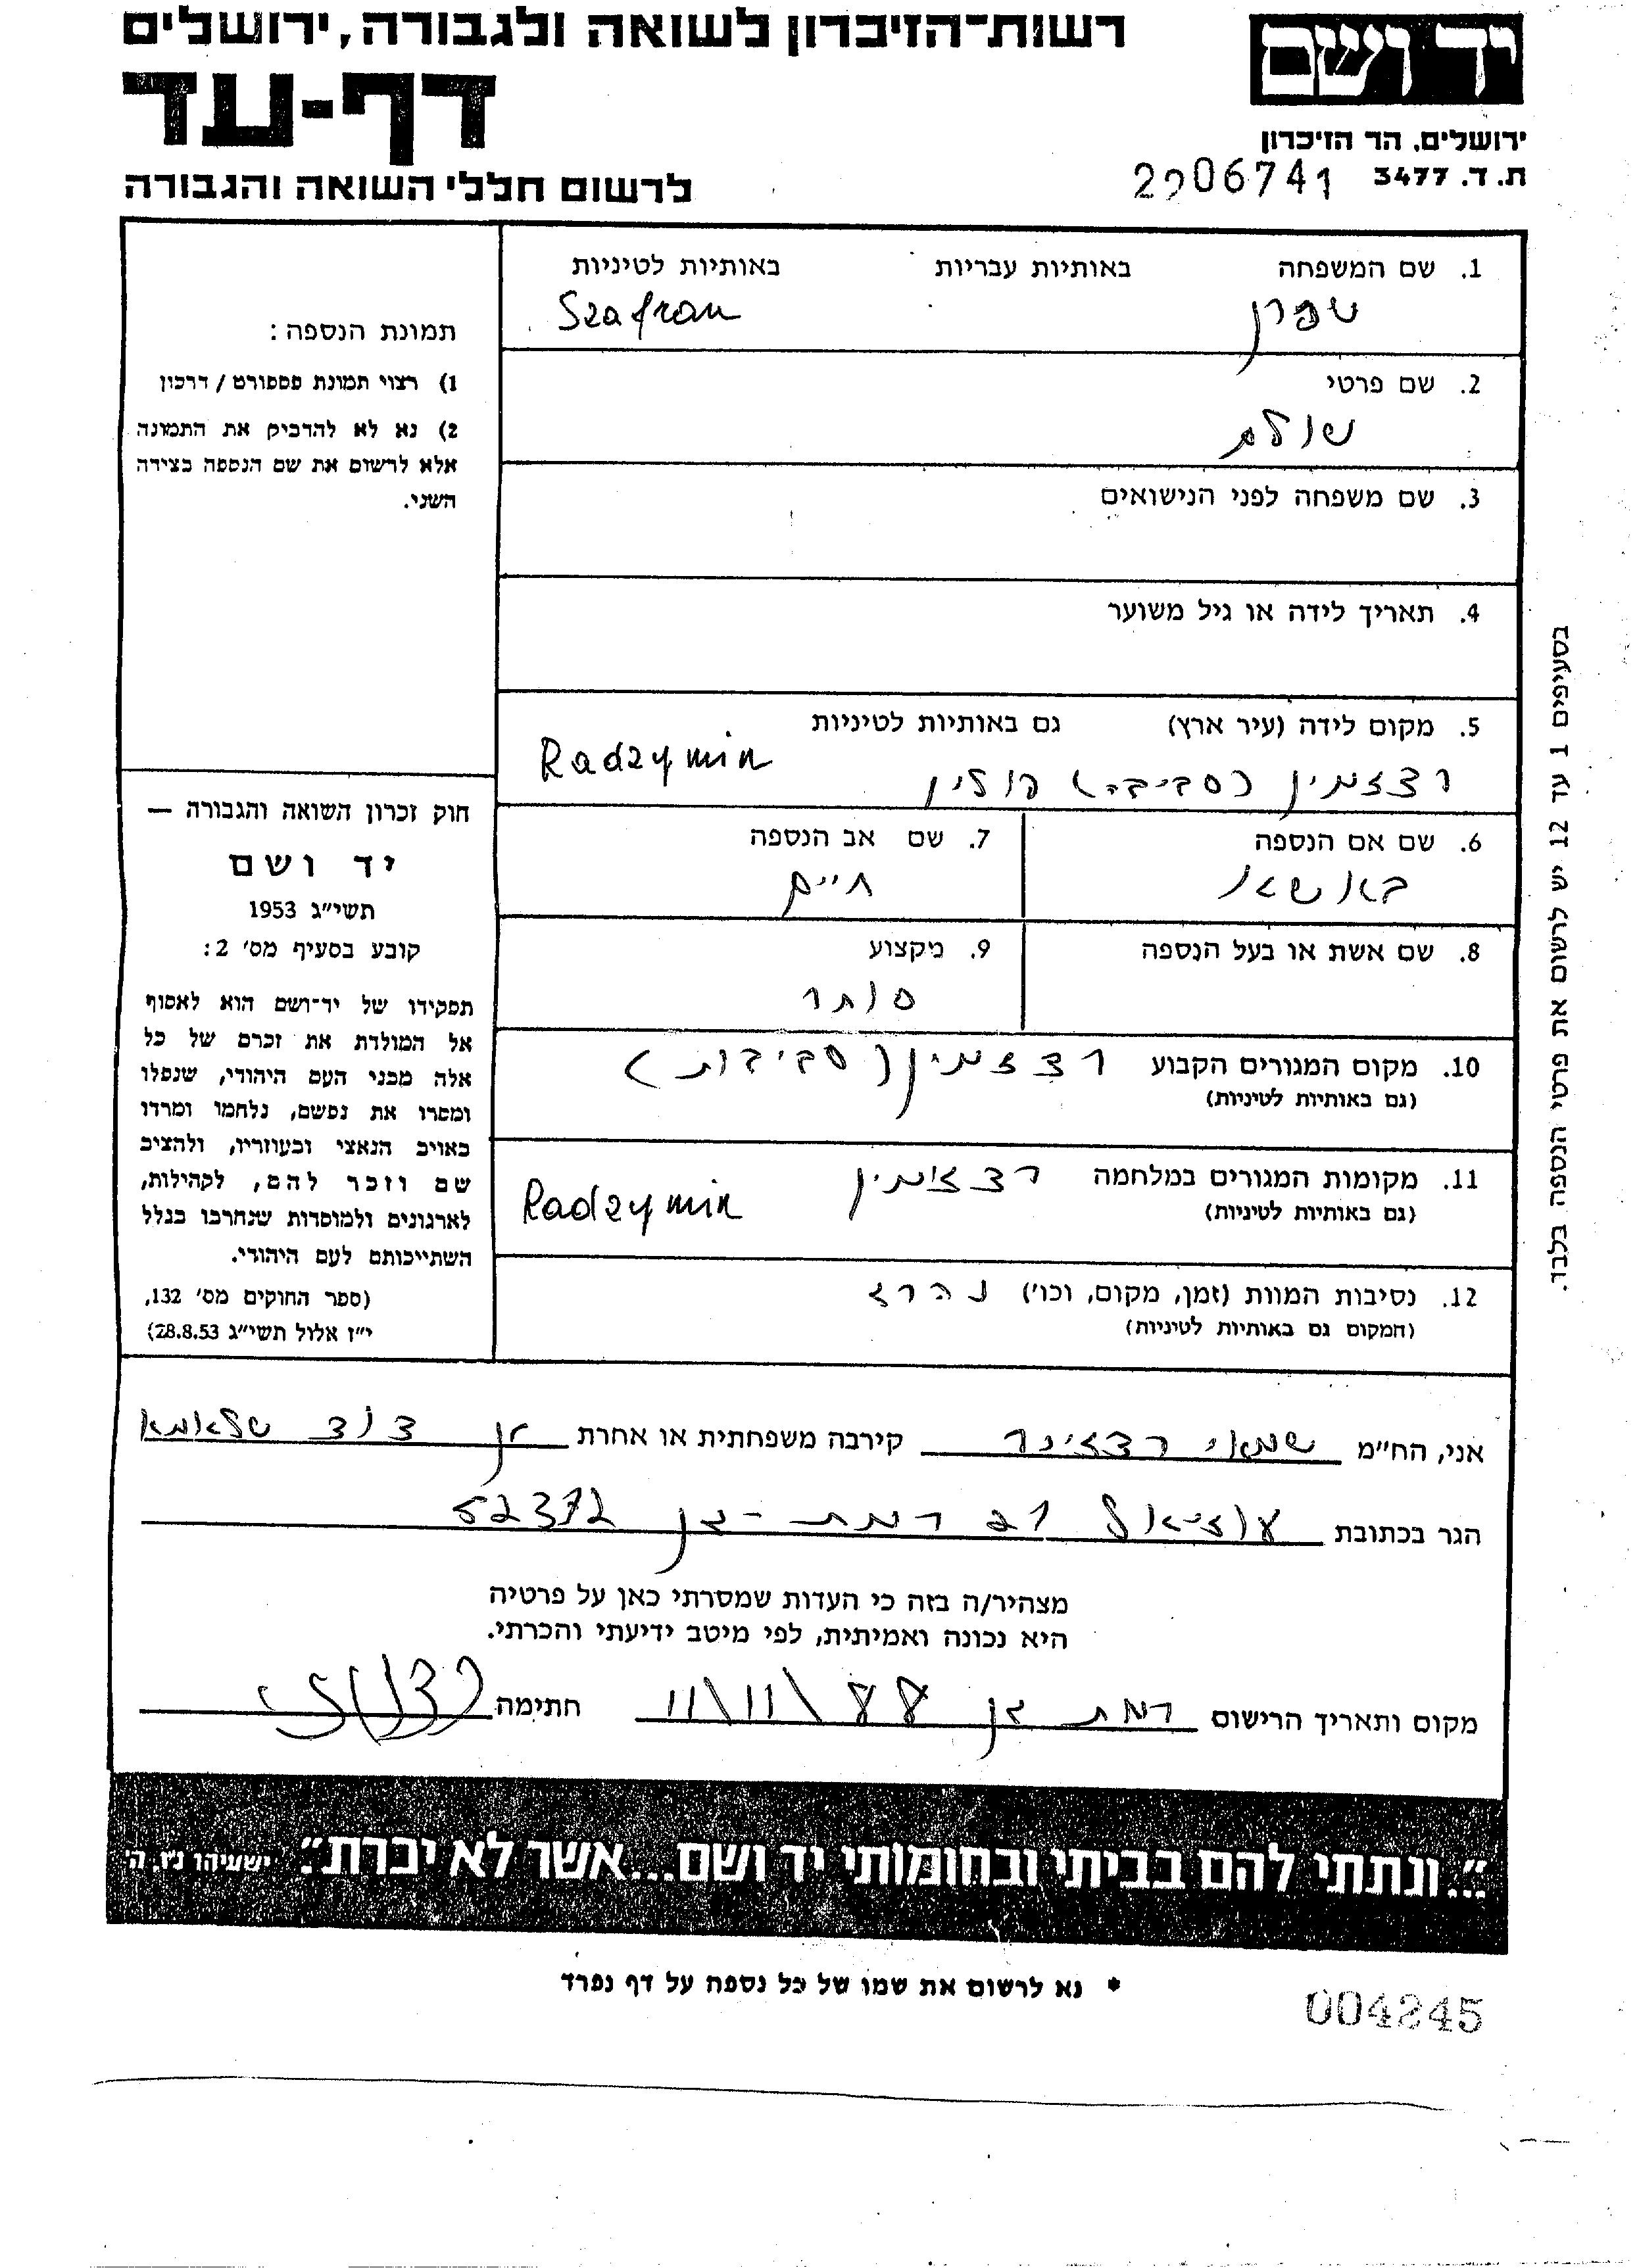 רשות־הזיכרון לשואה ולגבורה, ירושלים
דף-עד
לרשום חללי השואה והגבורה
יד ושם
ירושלים, הר הזיכרון
ת. ד. 3477
2906741
1. שם המשפחה באותיות עבריות באותיות לטיניות
שפרן Szafran
2. שם פרטי
שולם
3. שם משפחה לפני הנישואים
4. תאריך לידה או גיל משוער
5. מקום לידה (עיר ארץ) גם באותיות לטיניות
Radzymin
רצזמין (סביבה) פולין
6. שם אם הנספה
באשא
7. שם אב הנספה
חיים
8. שם אשת או בעל הנספה
9. מקצוע
סוחר
10. מקום המגורים הקבוע רצזמין (סביבות)
(גם באותיות לטיניות)
11. מקומות המגורים במלחמה רצזימין
(גם באותיות לטיניות)
Radzymin
12. נסיבות המוות (זמן, מקום, וכו') נהרג
(המקום גם באותיות לטיניות)
תמונת הנספה:
1) רצוי תמונת פספורט / דרכון
2) נא לא להדביק את התמונה
אלא לרשום את שם הנספה בצידה
השני.
חוק זכרון השואה והגבורה —
יד ושם
תשי"ג 1953
קובע בסעיף מס' 2:
תפקידו של יד־ושם הוא לאסוף
אל המולדת את זכרם של כל
אלה מבני העם היהודי, שנפלו
ומסרו את נפשם, נלחמו ומרדו
באויב הנאצי ובעוזריו, ולהציב
שם וזכר להם, לקהילות,
לארגונים ולמוסדות שנחרבו בגלל
השתייכותם לעם היהודי.
(ספר החוקים מס' 132,
י"ז אלול תשי"ג 28.8.53)
בסעיפים 1 עד 12 יש לרשום את פרטי הנספה בלבד.
אני, הח"מ שמאי רצזינר קירבה משפחתית או אחרת בן דוד
הגר בכתובת עוזיאל רמת-גן 52372
מצהיר/ה בזה כי העדות שמסרתי כאן על פרטיה
היא נכונה ואמיתית, לפי מיטב ידיעתי והכרתי.
מקום ותאריך הרישום רמת גן 11\11\88 חתימה
"...ונתתי להם בביתי ובחומותי יד ושם...אשר לא יכרת". ישעיהו נ"ו. ה'
* נא לרשום את שמו של כל נספה על דף נפרד
004245